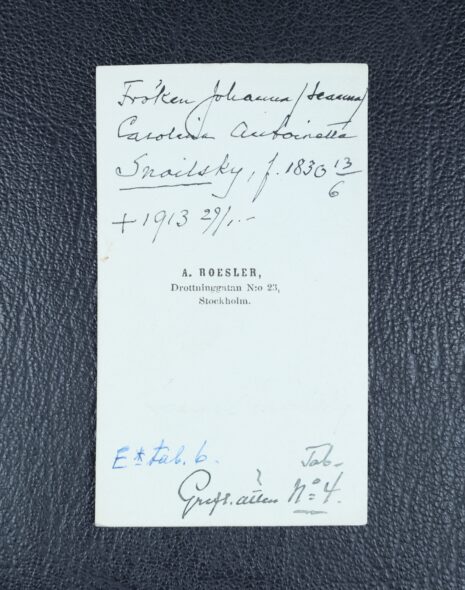 Fröken Johanna (Jeanna)
Carolina Antoinetta
Snoilsky, f. 1830 13/6
+ 1913 29/1.-
A. ROESLER,
Drottninggatan N:o 23,
Stockholm.
E* tab. 6.
Tab.
? N:o 4.